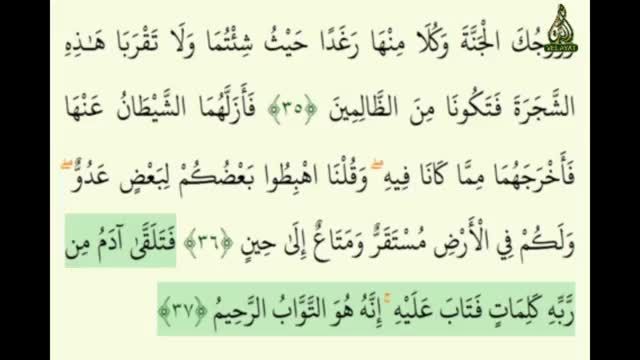 VELAYAT
وَزَوْجُكَ الْجَنَّةَ وَكُلَا مِنْهَا رَغَدًا حَيْثُ شِئْتُمَا وَلَا تَقْرَبَا هَٰذِهِ
الشَّجَرَةَ فَتَكُونَا مِنَ الظَّالِمِينَ ﴿٣٥﴾ فَأَزَلَّهُمَا الشَّيْطَانُ عَنْهَا
فَأَخْرَجَهُمَا مِمَّا كَانَا فِيهِ ۖ وَقُلْنَا اهْبِطُوا بَعْضُكُمْ لِبَعْضٍ عَدُوٌّ ۖ
وَلَكُمْ فِي الْأَرْضِ مُسْتَقَرٌّ وَمَتَاعٌ إِلَىٰ حِينٍ ﴿٣٦﴾ فَتَلَقَّىٰ آدَمُ مِن
رَّبِّهِ كَلِمَاتٍ فَتَابَ عَلَيْهِ ۚ إِنَّهُ هُوَ التَّوَّابُ الرَّحِيمُ ﴿٣٧﴾